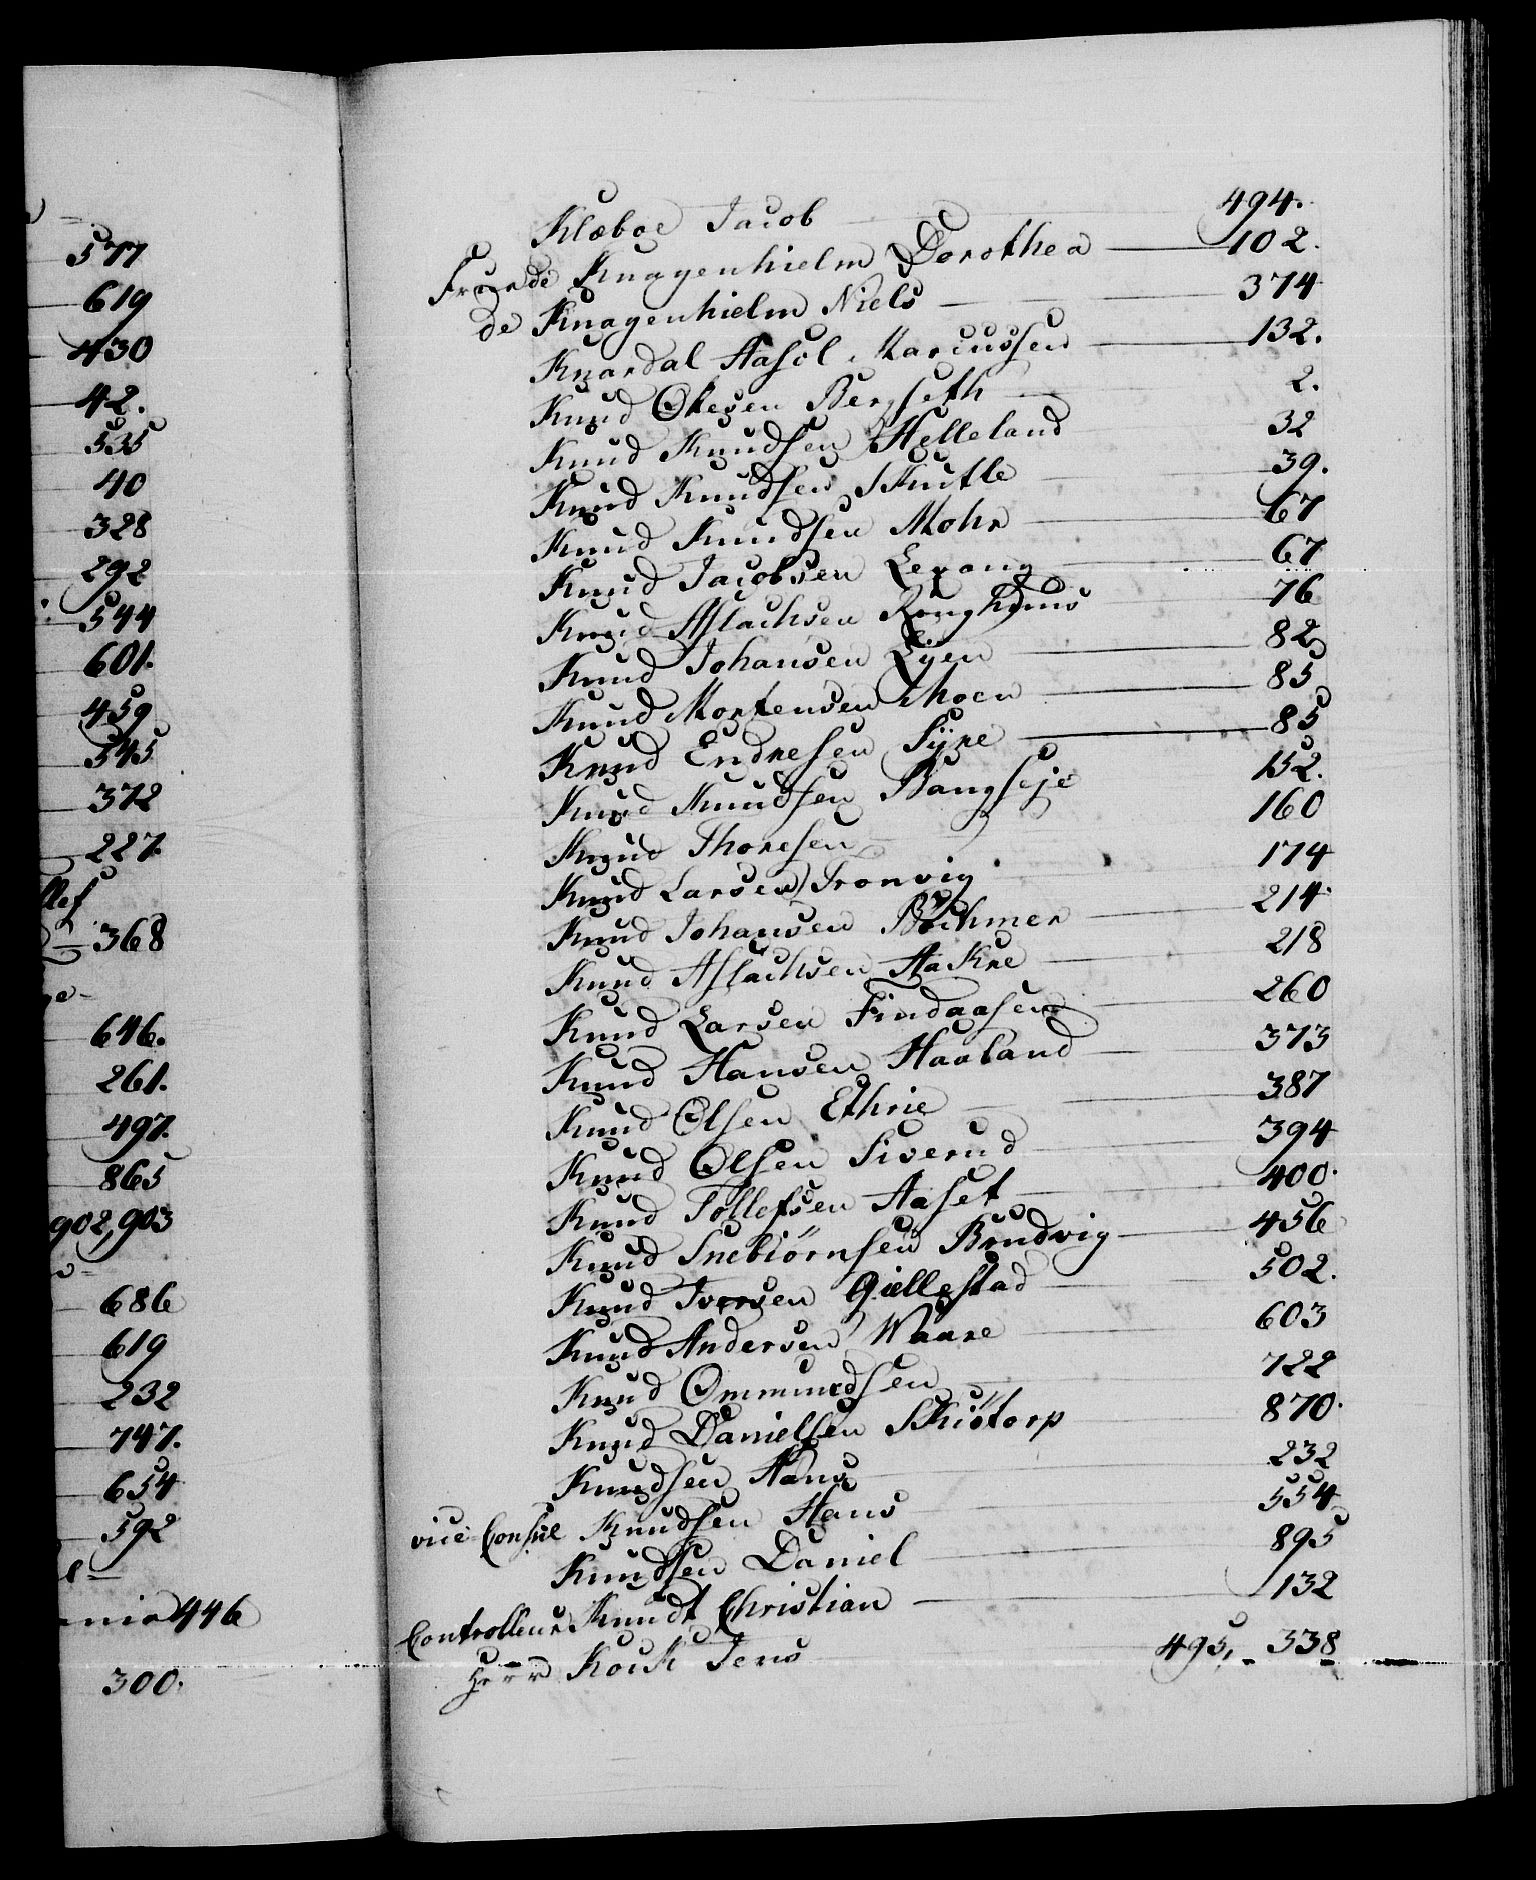 577
619
430
42.
535
40
328
292
544
601.
459
545
372
227.
368
646.
261.
497.
865
902, 903
686
619
232
747.
654
592
446
300.
Klæboe Jacob 494.
Frue de Knagenhielm Dorothea 102.
de Knagenhielm Niels 374
Knardal Aasol Marcussen 132.
Knud Okesen Bergseth 2.
Knud Knudsen Helleland 32
Knud Knudsen Skutle 39.
Knud Knudsen Mohn 67
Knud Jacobsen Lexong 67
Knud Aslachsen 76
Knud Johansen Lyen 82
Knud Mortensen Moen 85
Knud Endresen Syre 85
Knud Knudsen Bangseje 152.
Knud Thoresen 160
Knud Larsen Tronvig 174
Knud Johansen Böchmer 214.
Knud Aslachsen Aakre 218
Knud Larsen Findaasen 260
Knud Hansen Haaland 373
Knud Olsen Ethrie 387
Knud Olsen Siverud 394
Knud Tollefsen Aaset 400.
Knud Snebiörnsen Brudvig 456
Knud Iversen Giellestad 502.
Knud Andersen Waare 603
Knud Ommundsen 722
Knud Danielsen Skiötorp 870.
Knudsen Hans 232
vice Consul Knudsen Hans 554
Knudsen Daniel 895
Controlleur Knudt Christian 132
Herr Kock Jens 495, 338